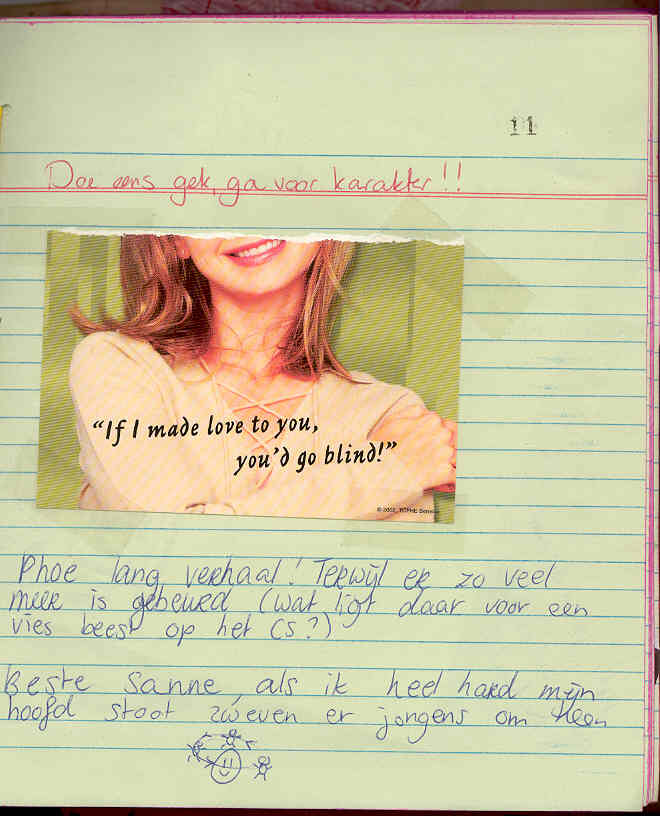 11
Doe eens gek, ga voor karakter!!
"If I made love to you,
you'd go blind!"
© 2002,
Phoe lang verhaal! Terwijl er zo veel
meer is gebeurd (wat ligt daar voor een
vies beest op het CS?)
Beste Sanne, als ik heel hard mijn
hoofd stoot zweven er jongens om heen